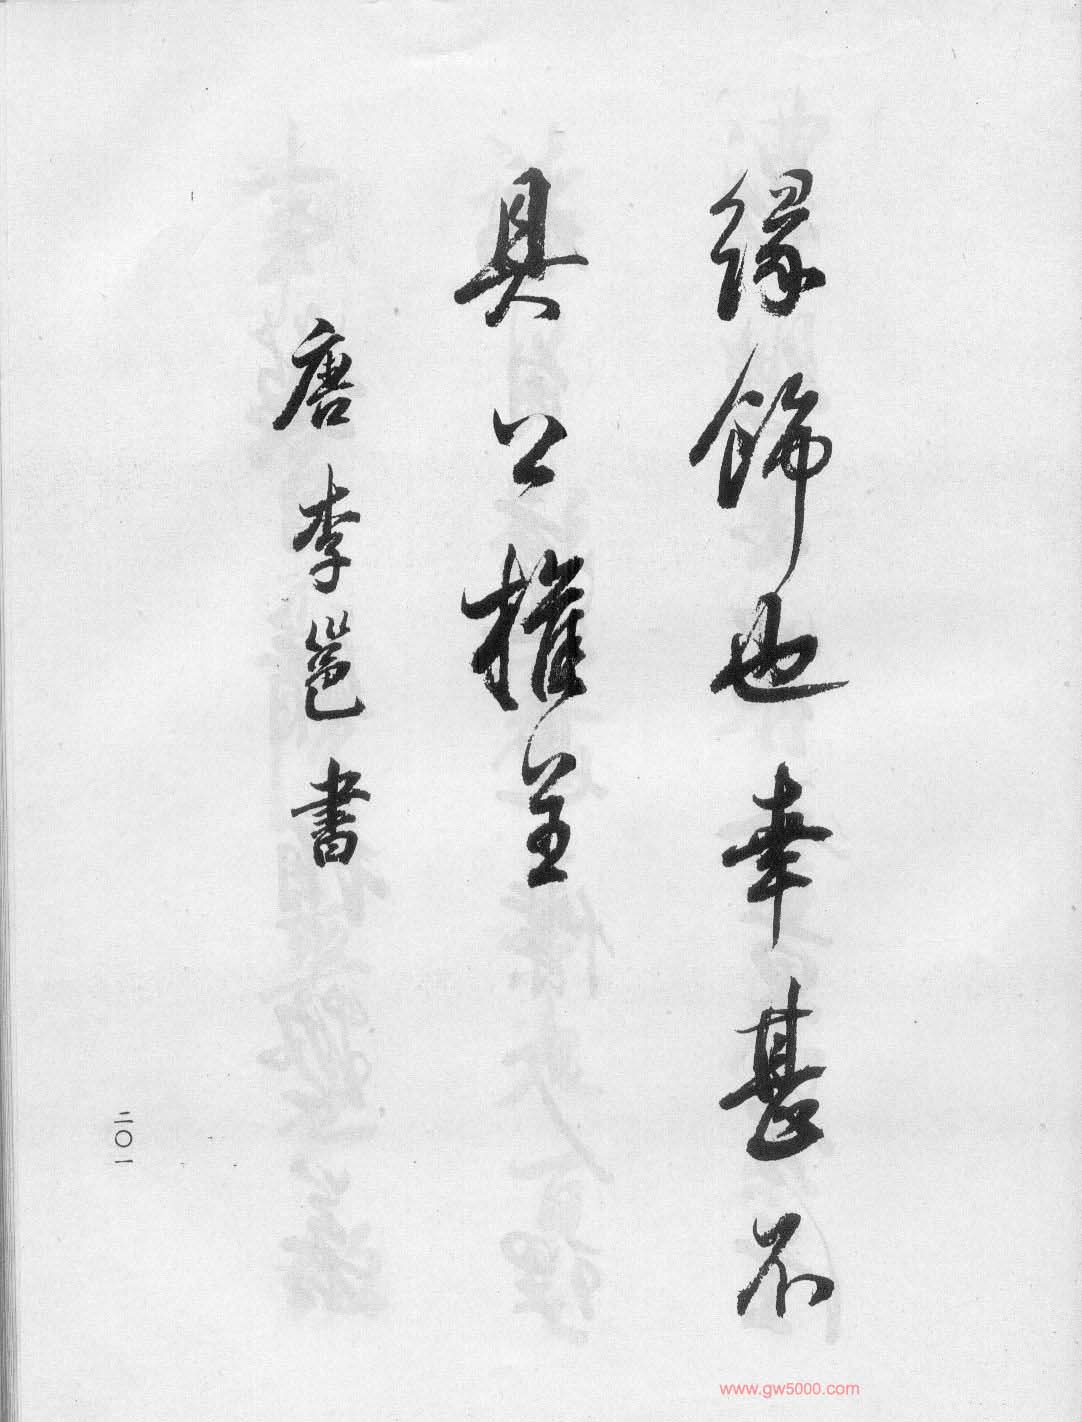 緣飾也幸甚不
具公權呈
唐李邕書
二〇一
www.gw5000.com